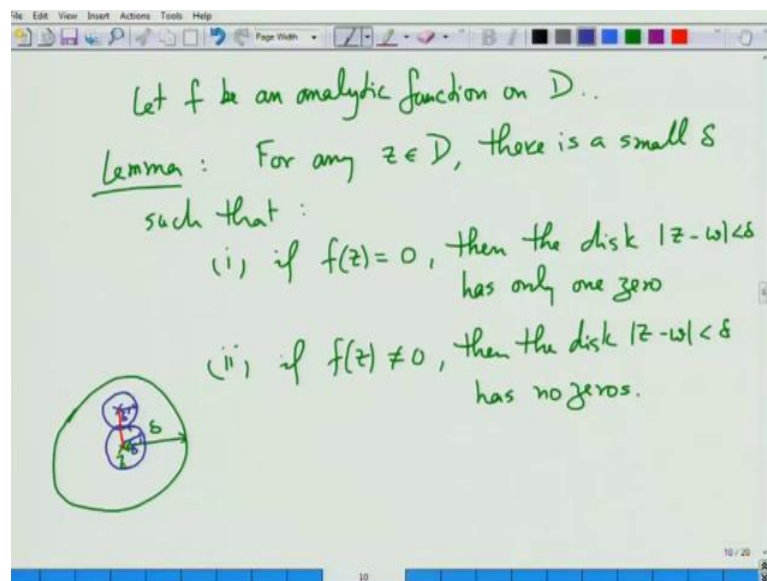 File Edit View Insert Actions Tools Help
Page Width
B I
Let f be an analytic function on D..
Lemma : For any z ∈ D, there is a small δ
such that :
(i) if f(z) = 0, then the disk |z-ω|<δ
has only one zero
(ii) if f(z) ≠ 0, then the disk |z-ω|<δ
has no zeros.
δ
10 / 20
10